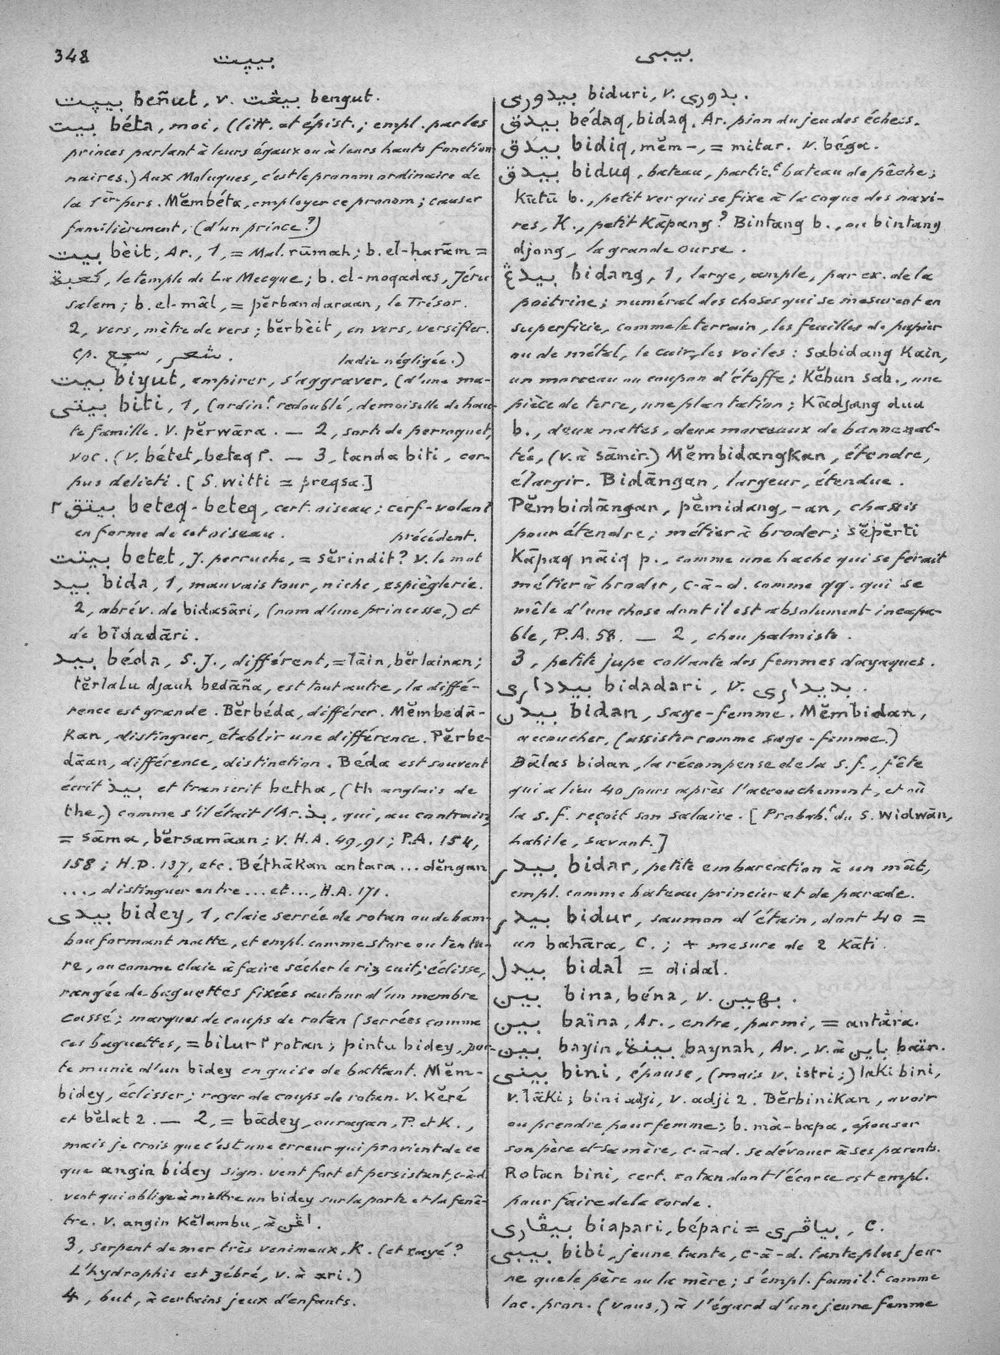 348
بيڽت
بيبي
بيڽت beñut, v. بيڠت bengut.
بيت béta, moi, (litt. et épist.; empl. par les
princes parlant à leurs égaux ou à leurs hauts fonction
naires.) Aux Moluques, c'est le pronom ordinaire de
la 1ère pers. Mĕmbéta, employer ce pronom; causer
familièrement, (d'un prince?)
بيت bèit, Ar., 1, = Mal. rūmah; b. el-harām =
كعبة, le temple de La Mecque; b. el-moqadas, Jéru
salem; b. el-māl, = pĕrbandaraan, le Trésor.
2, vers, mètre de vers; bĕrbèit, en vers, versifier.
cp. سجع, شعر.
ladie négligée.)
بيت biyut, empirer, s'aggraver, (d'une ma-
بيتى biti, 1, (ordint redoublé, demoiselle de hau
te famille. v. pĕrwāra. — 2, sorte de perroquet,
voc. (v. bétet, beteq ٢. — 3, tanda biti, cor-
pus delicti. [S. witti = preqsa.]
بيتق٢ beteq-beteq, cert. oiseau; cerf-volant
en forme de cet oiseau.
précédent.
بيتت betet, J. perruche, = sĕrindit? v. le mot
بيد bida, 1, mauvais tour, niche, espièglerie.
2, abrév. de bidasāri, (nom d'une princesse,) et
de bīdadāri.
بيد béda, S. J., différent, = lāin, bĕrlainan;
tĕrlalu djauh bedāña, est tout autre, la diffé-
rence est grande. Bĕrbéda, différer. Mĕmbedā-
kan, distinguer, établir une différence. Pĕrbe-
dāan, différence, distinction. Béda est souvent
écrit بيذ et transcrit betha, (th anglais de
the,) comme s'il était l'Ar. بذ, qui, au contraire,
= sāma, bĕrsamāan; v. H.A. 49,91; P.A. 154,
158; H.D. 137, etc. Béthākan antara ... dĕngan
..., distinguer entre ... et ..., H.A. 171.
بيدى bidey, 1, claie serrée de rotan ou de bam-
bou formant natte, et empl. comme store ou tentu-
re, ou comme claie à faire sécher le riz cuit; éclisse,
rangée de baguettes fixées autour d'un membre
cassé; marques de coups de rotan (serrées comme
ces baguettes, = bilur ٢ rotan; pintu bidey, por-
te munie d'un bidey en guise de battant. Mĕm-
bidey, éclisser; rayer de coups de rotan. v. Kĕré
et bĕlat 2. — 2, = bādey, ouragan, P. et K.,
mais je crois que c'est une erreur qui provient de ce
que angin bidey sign. vent fort et persistant, c-à-d
vent qui oblige à mettre un bidey sur la porte et la fenê-
tre. v. angin Kĕlambu, à اڠن.
3, serpent de mer très venimeux, K. (et rayé?
L'hydrophis est zébré, v. à ari.)
4, but, à certains jeux d'enfants.
بيدورى biduri, v. بدورى.
بيدق bédaq, bidaq, Ar. pion du jeu des échecs.
بيدق bidiq, mĕm-, = mitar. v. béga.
بيدق biduq, bateau, particᵗ bateau de pêche;
Kūtū b., petit ver qui se fixe à la coque des navi-
res, K., petit Kāpang? Bintang b., ou bintang
djong, la grande Ourse.
بيدڠ bidang, 1, large, ample, par ex. de la
poitrine; numéral des choses qui se mesurent en
superficie, comme le terrain, les feuilles de papier
ou de métal, le cuir, les voiles: sabidang Kain,
un morceau ou coupon d'étoffe; Kĕbun sab., une
pièce de terre, une plantation; Kādjang dua
b., deux nattes, deux morceaux de banne nat-
tée, (v. à sāmir.) Mĕmbidangkan, étendre,
élargir. Bidāngan, largeur, étendue.
Pĕmbidāngan, pĕmidang, -an, chassis
pour étendre; métier à broder; sĕpĕrti
Kāpaq nāiq p., comme une hache qui se ferait
métier à broder, c-à-d. comme qq. qui se
mêle d'une chose dont il est absolument incapa-
ble, P.A. 58. — 2, chou palmiste.
3, petite jupe collante des femmes dayaques.
بيددارى bidadari, v. بديدارى.
بيدن bidan, sage-femme. Mĕmbidan,
accoucher, (assister comme sage-femme.)
Bālas bidan, la récompense de la s.f., fête
qui a lieu 40 jours après l'accouchement, et où
la s.f. reçoit son salaire. [Probabt du S. widwān,
habile, savant.]
بيدر bidar, petite embarcation à un mât,
empl. comme bateau princier et de parade.
بيدر bidur, saumon d'étain, dont 40 =
un bahāra, C.; + mesure de 2 Kāti.
بيدل bidal = didal.
بين bina, béna, v. بهين.
بين baïna, Ar., entre, parmi, = antāra.
بين bayin, بينة baynah, Ar., v. à باين baïn.
بينى bini, épouse, (mais v. istri;) laki bini,
v. lāki; bini adji, v. adji 2. Bĕrbinikan, avoir
ou prendre pour femme; b. mā-bapa, épouser
son père et sa mère, c-à-d. se dévouer à ses parents.
Rotan bini, cert. rotan dont l'écorce est empl.
pour faire de la corde.
بيڤارى biapari, bépari = بياڤرى, C.
بيبى bibi, jeune tante, c-à-d. tante plus jeu-
ne que le père ou la mère; s'empl. familt comme
loc. pron. (vous,) à l'égard d'une jeune femme